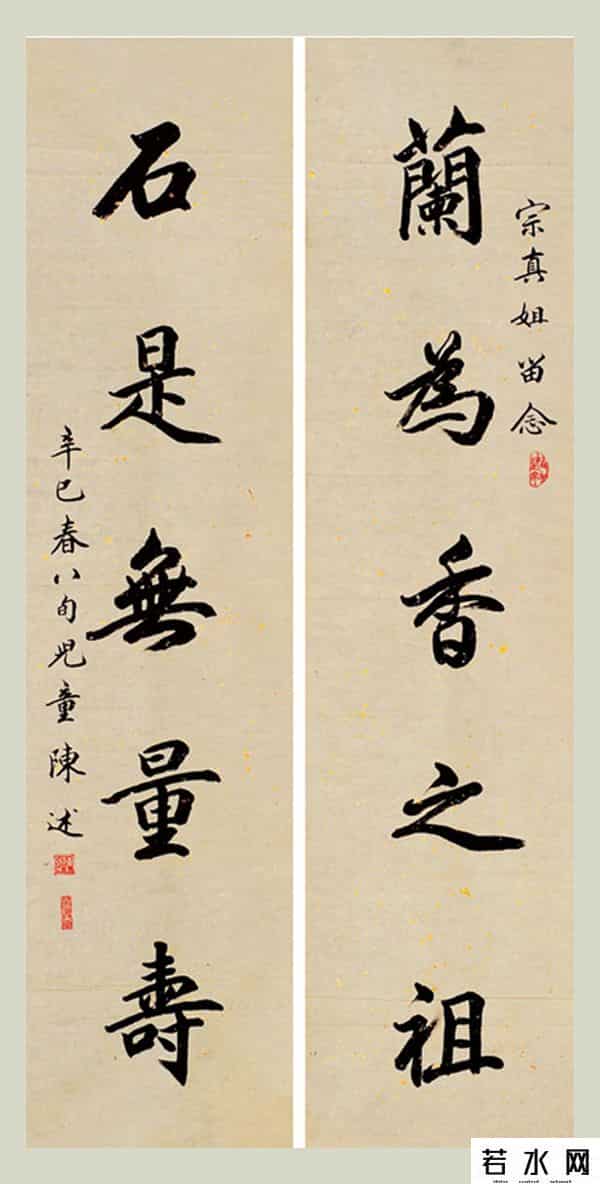 蘭為香之祖
宗真姐留念
石是無量壽
辛巳春八旬兒童陳述
若水网